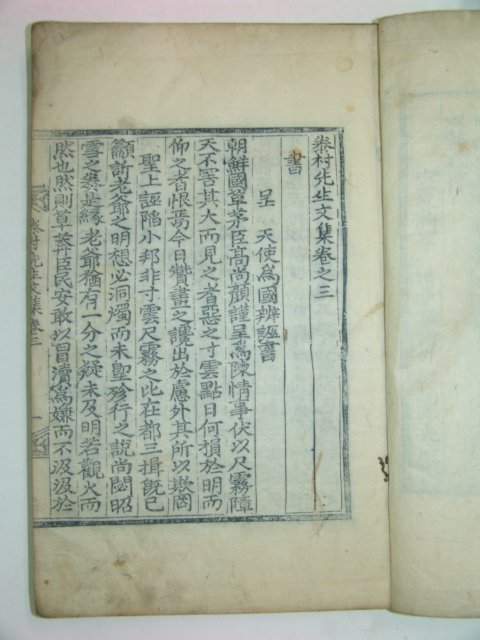 泰村先生文集卷之三
書
呈 天使爲國辨誣書
朝鮮國草茅臣高尙顔謹呈爲陳情事伏以尺霧障
天不害其大而見之者惡之寸雲點日何損於明而
仰之者恨焉今日贊畫之讒出於慮外其所以欺罔
聖上誣陷小邦非寸雲尺霧之比在都三揖旣已
籲訴老爺之明想必洞燭而未卽殄行之說尙閟昭
雪之典是緣 老爺猶有一分之疑未及明若觀火而
然也然則草莽臣民安敢以冒瀆爲嫌而不汲汲於
泰村先生文集 卷三 一